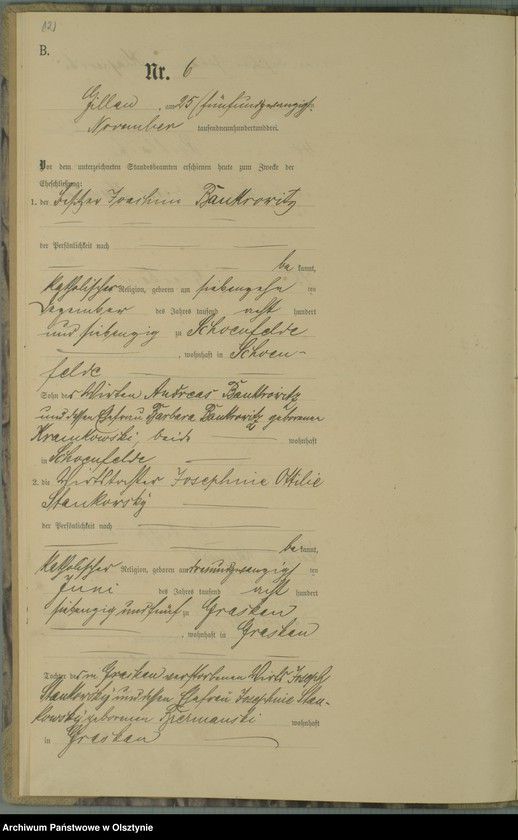 (12)
B.
Nr. 6
Gillau, am 25 (fünfundzwanzigst.
November tausendneunhundertunddrei.
Vor dem unterzeichneten Standesbeamten erschienen heute zum Zwecke der
Eheschließung:
1. der Besitzer Joachim Bankrowitz
der Persönlichkeit nach
be kannt,
katholischer Religion, geboren am siebenzehn ten
Dezember des Jahres tausend acht hundert
und siebenzig zu Schoenfelde
, wohnhaft in Schoen-
felde
Sohn des Wirten Andreas Bankrowitz
und dessen Ehefrau Barbara Bankrowitz geborenen
beide wohnhaft
in Schoenfelde
2. die Wirtstochter Josephine Ottilie
Stankowsky
der Persönlichkeit nach
be kannt,
katholischer Religion, geboren am dreiundzwanzigs ten
Juni des Jahres tausend acht hundert
siebenzig und fünf zu Grasken
, wohnhaft in Grasken
Tochter des in Grasken verstorbenen Wirts Joseph
Stankowsky und dessen Ehefrau Josephine Stan-
kowsky geborenen Biermanski wohnhaft
in Grasken
Archiwum Państwowe w Olsztynie